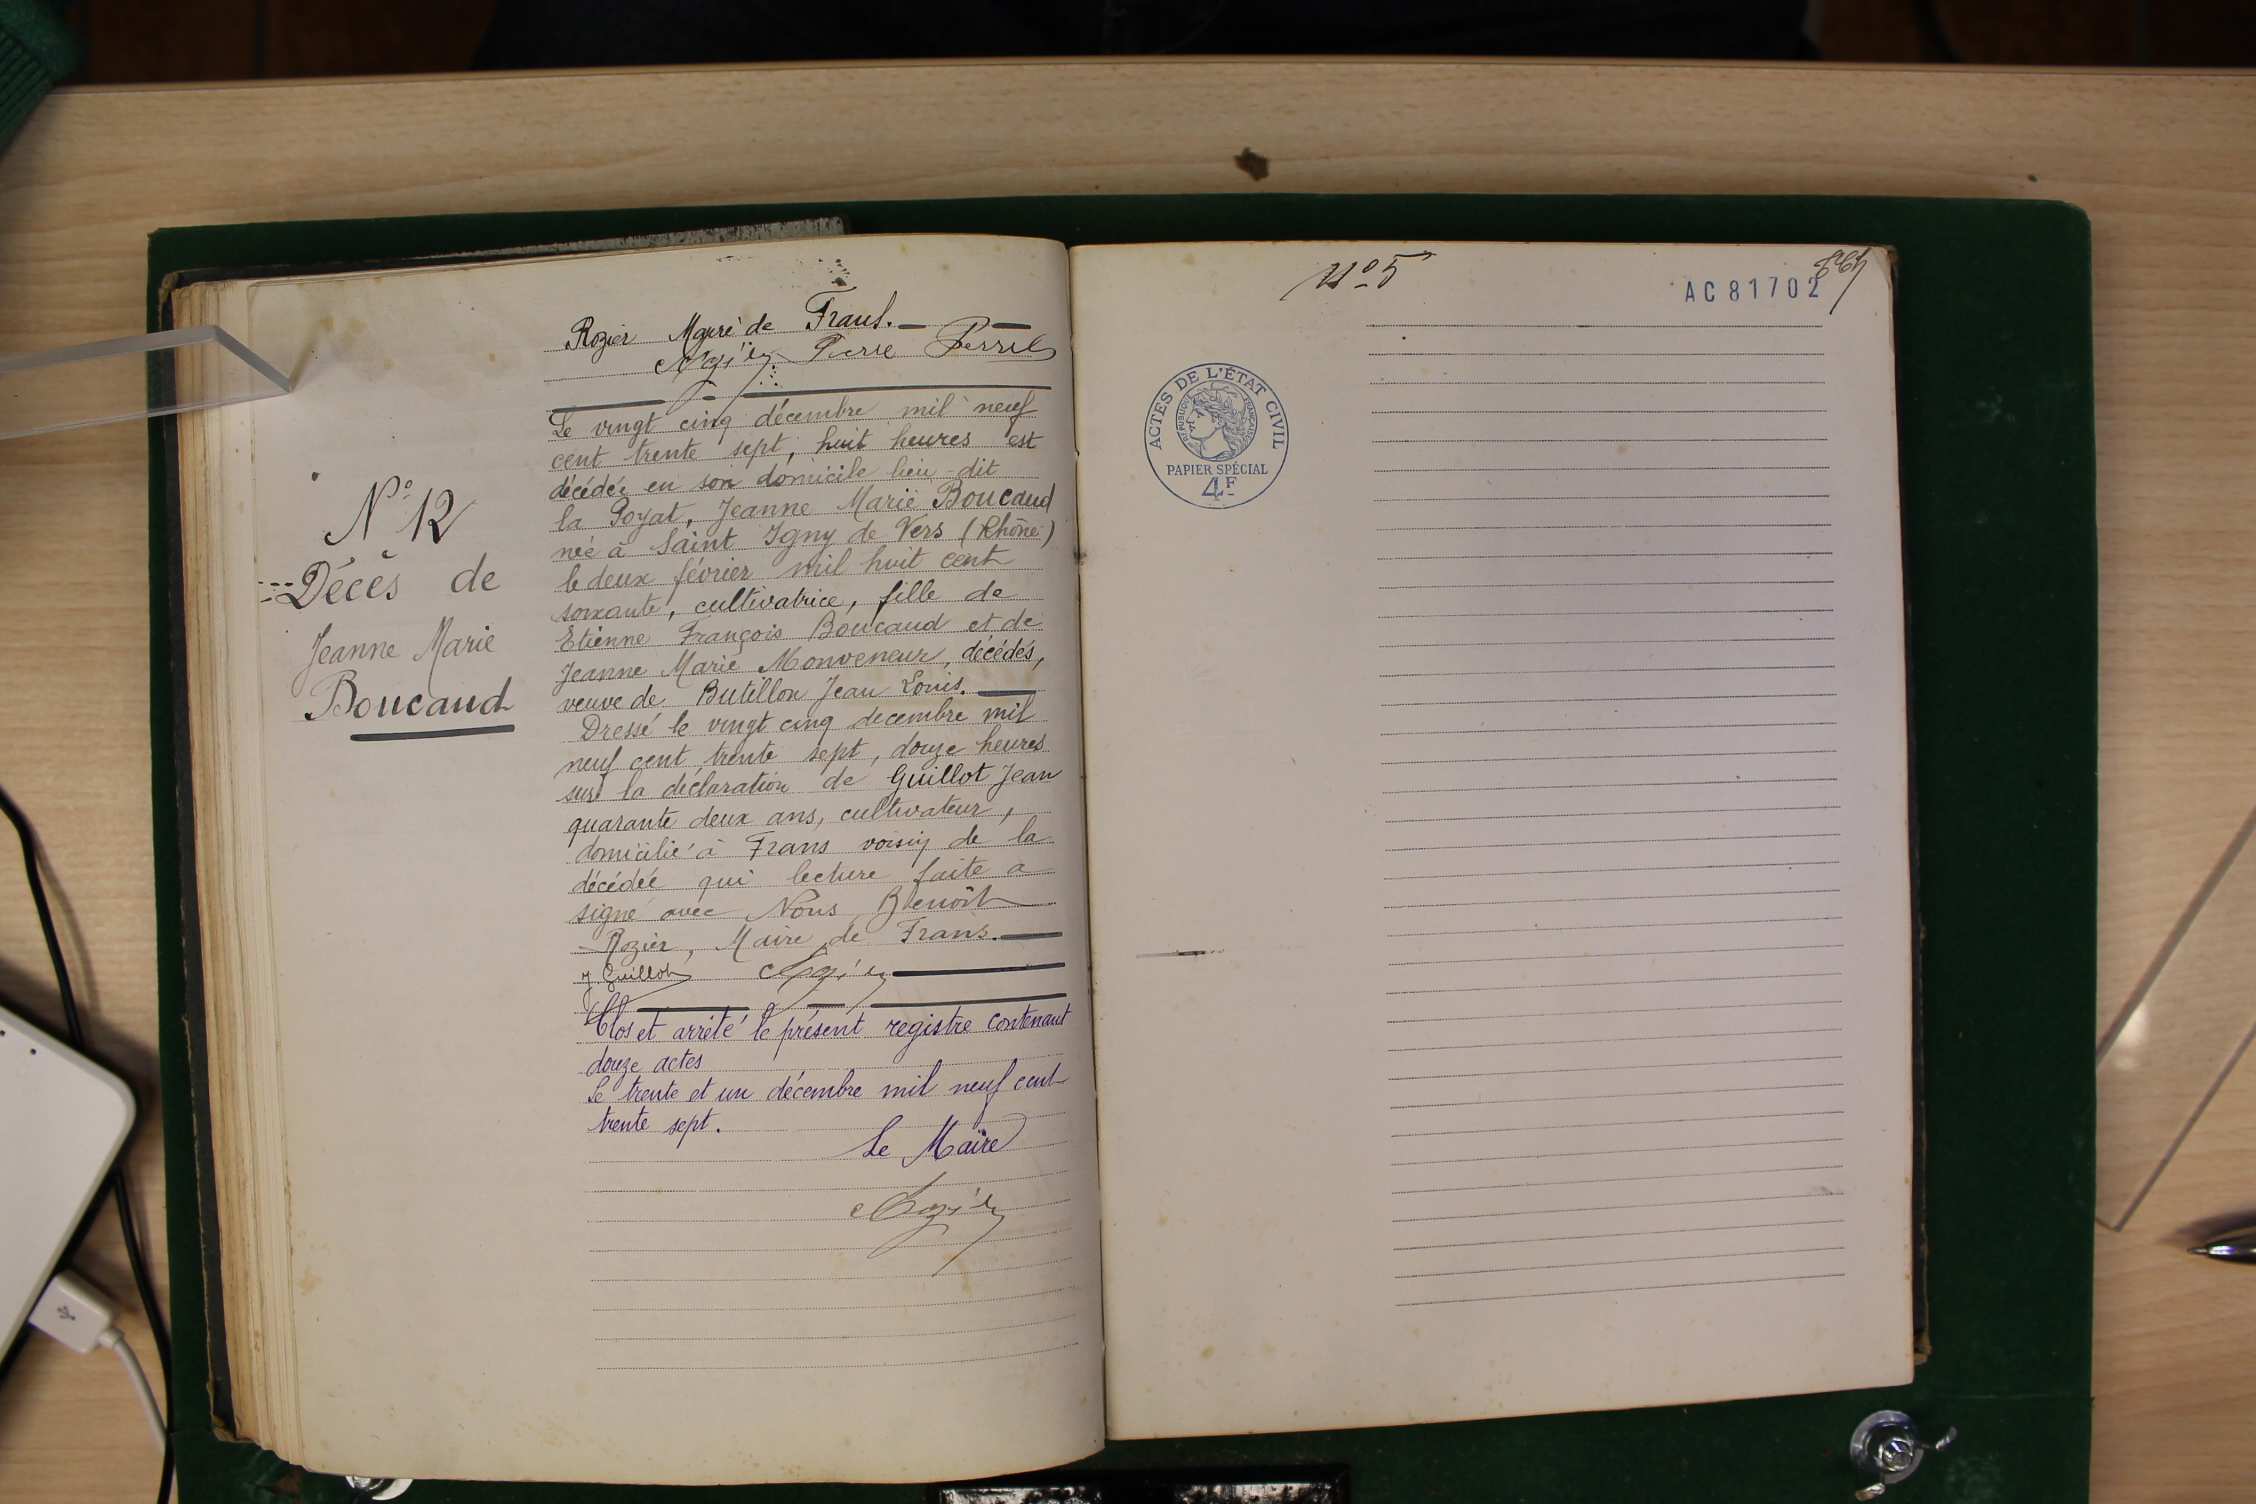 Rozier Maire de Frans.
Pierre Perrel
Le vingt cinq décembre mil neuf
cent trente sept, huit heures est
décédée en son domicile lieu-dit
la Poyat, Jeanne Marie Boucaud
née à Saint Igny de Vers (Rhône)
le deux février mil huit cent
soixante, cultivatrice, fille de
Etienne François Boucaud et de
Jeanne Marie Monveneur, décédés,
veuve de Butillon Jean Louis.
Dressé le vingt cinq décembre mil
neuf cent trente sept, douze heures
sur la déclaration de Guillot Jean
quarante deux ans, cultivateur,
domicilié à Frans voisin de la
décédée qui lecture faite a
signé avec Nous Benoît
Rozier, Maire de Frans.
J. Guillot Rozier
Clos et arrêté le présent registre contenant
douze actes
Le trente et un décembre mil neuf cent
trente sept.
Le Maire
Rozier
N° 12
Décès de
Jeanne Marie
Boucaud
N° 5
AC 81702
ACTES DE L'ÉTAT CIVIL
RÉPUBLIQUE FRANÇAISE
PAPIER SPÉCIAL
4F